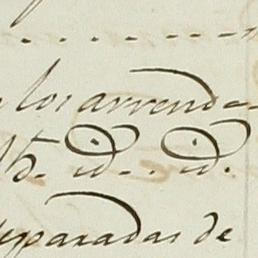 los arrend-
id. id.
separadas de